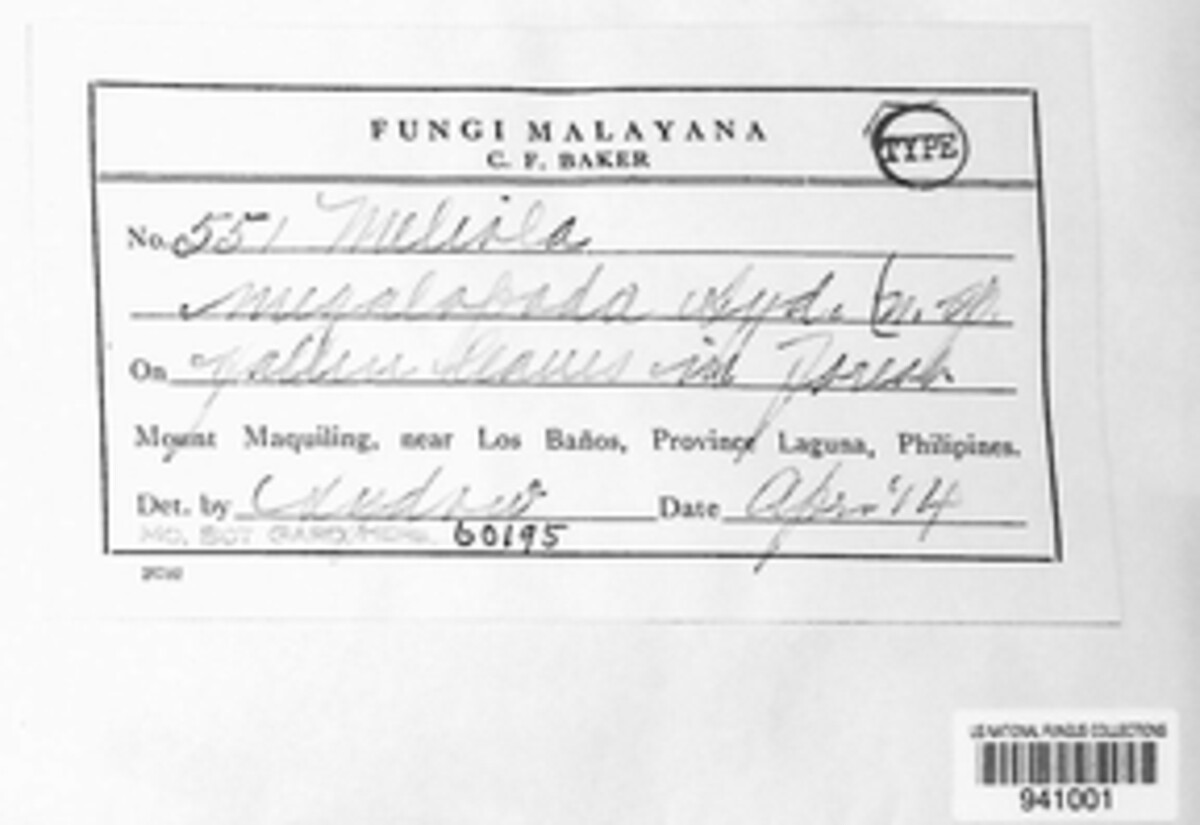 FUNGI MALAYANA
C. F. BAKER
TYPE
No. 551 Meliola
megalopoda Syd. (n. sp.
On fallen leaves in forest
Mount Maquiling, near Los Baños, Province Laguna, Philipines.
Det. by Sydow Date Apr. '14
MO. BOT. GARD. HERB. 60195
US NATIONAL FUNGUS COLLECTIONS
941001